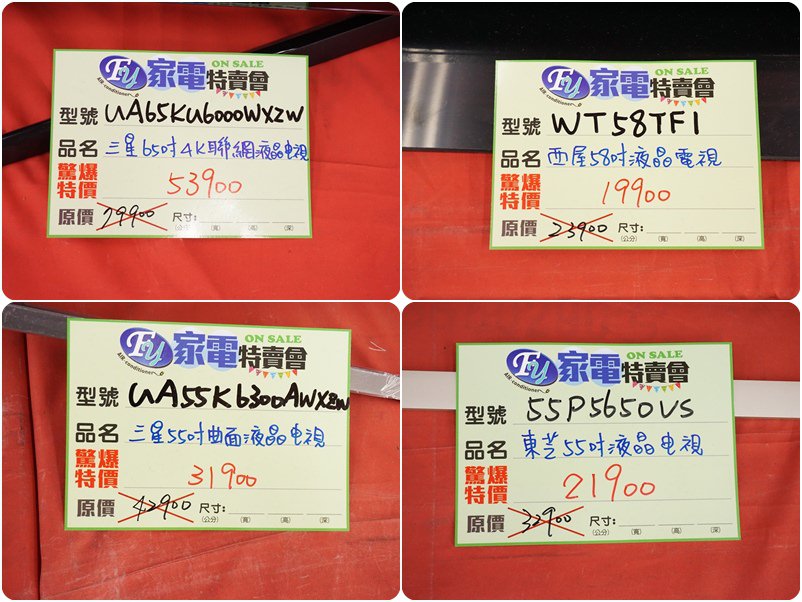 FU 家電特賣會 ON SALE
AIR conditioner
型號 UA65KU6000WXZW
品名 三星65吋4K聯網液晶电視
驚爆特價 53900
原價 79900 尺寸:
(公分) (寬) (高) (深)
FU 家電特賣會 ON SALE
AIR conditioner
型號 WT58TF1
品名 西屋58吋液晶電視
驚爆特價 19900
原價 23900 尺寸:
(公分) (寬) (高) (深)
FU 家電特賣會 ON SALE
AIR conditioner
型號 UA55K6300AWXZW
品名 三星55吋曲面液晶电視
驚爆特價 31900
原價 42900 尺寸:
(公分) (寬) (高) (深)
FU 家電特賣會 ON SALE
AIR conditioner
型號 55P5650VS
品名 東芝55吋液晶电視
驚爆特價 21900
原價 32900 尺寸:
(公分) (寬) (高) (深)